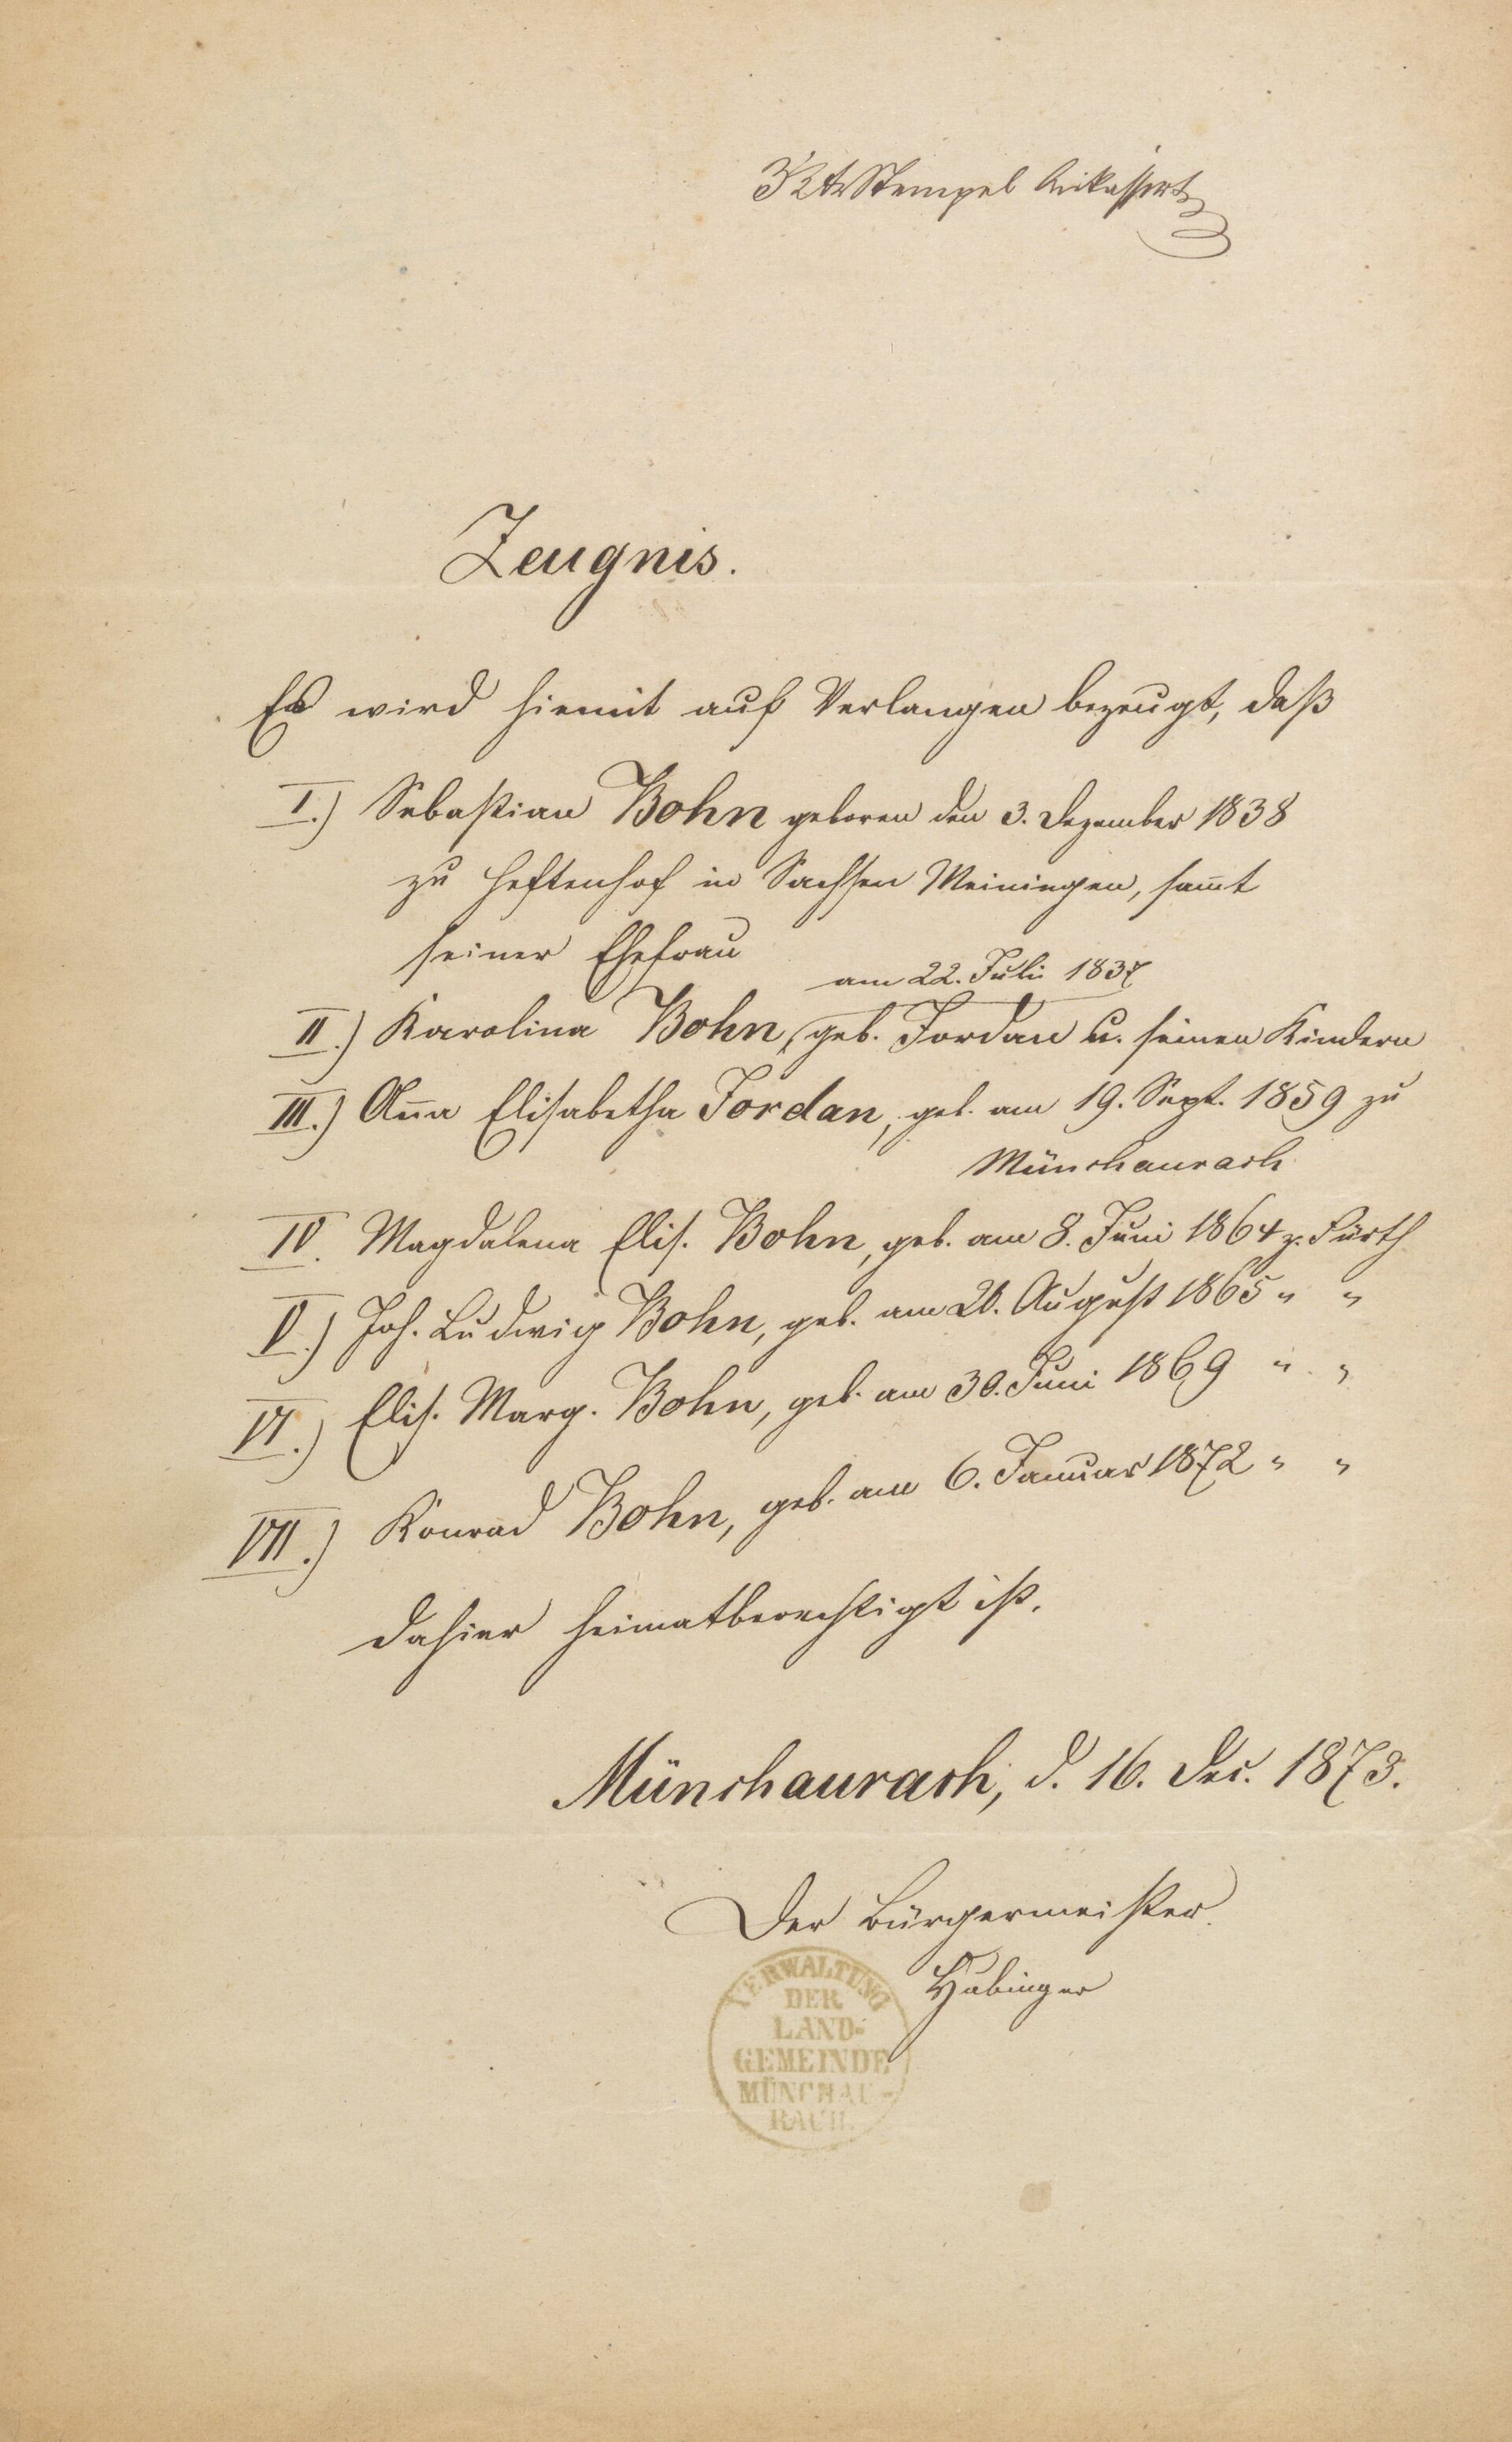 3 Kr Stempel kassirt
Zeugnis.
Es wird hiemit auf Verlangen bezeugt, daß
I.) Sebastian Bohn geboren den 3. Dezember 1838
zu Heftenhof in Sachsen Meiningen, sam̅t
seiner Ehefrau
am 22. Juli 1837
II.) Karolina Bohn, geb. Jordan u. seinen Kindern
III.) An̅a Elisabetha Jordan, geb. am 19. Sept. 1859 zu
Münchaurach
IV. Magdalena Elis. Bohn, geb. am 8. Juni 1864 z. Fürth
V.) Joh. Ludwig Bohn, geb. am August 1865 " "
VI.) Elis. Marg. Bohn, geb. am 30. Juni 1869 " "
VII.) Konrad Bohn, geb. am 6. Januar 1872 " "
dahier heimatberechtigt ist.
Münchaurach, d. 16. Dec. 1873.
Der Bürgermeister
Hubinger
VERWALTUNG
DER
LAND-
GEMEINDE
MÜNCHAU-
RACH.